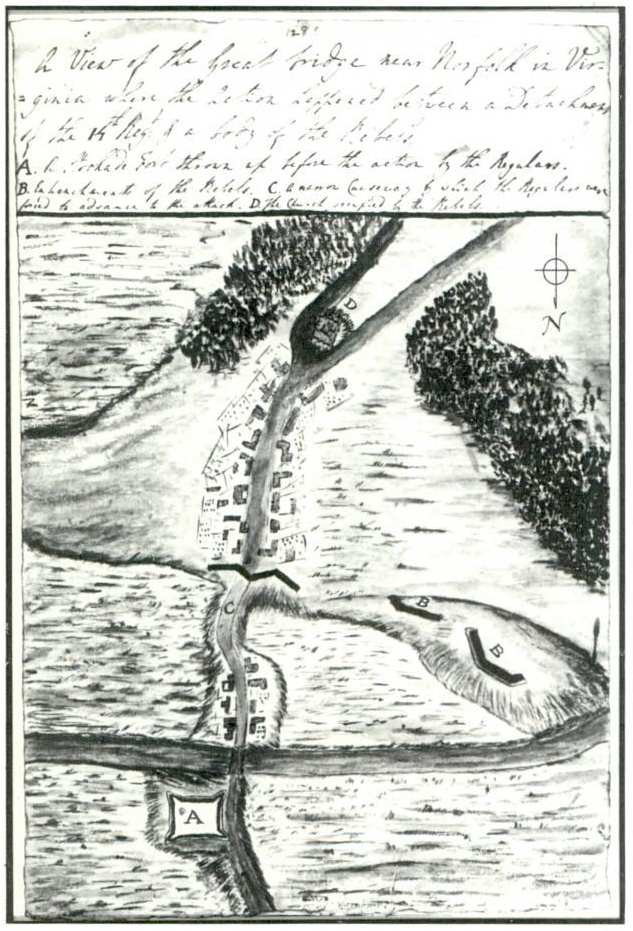 128
A View of the Great bridge near Norfolk in Vir-
=ginia where the Action happened between a Detachment
of the 14th Regt & a body of the Rebels
A. A Stockade Fort thrown up before the action by the Regulars.
B. Entrenchments of the Rebels. C a narrow Causeway by which the Regulars were
forced to advance to the attack. D The Church occupied by the Rebels
D
N
B
C
B
A